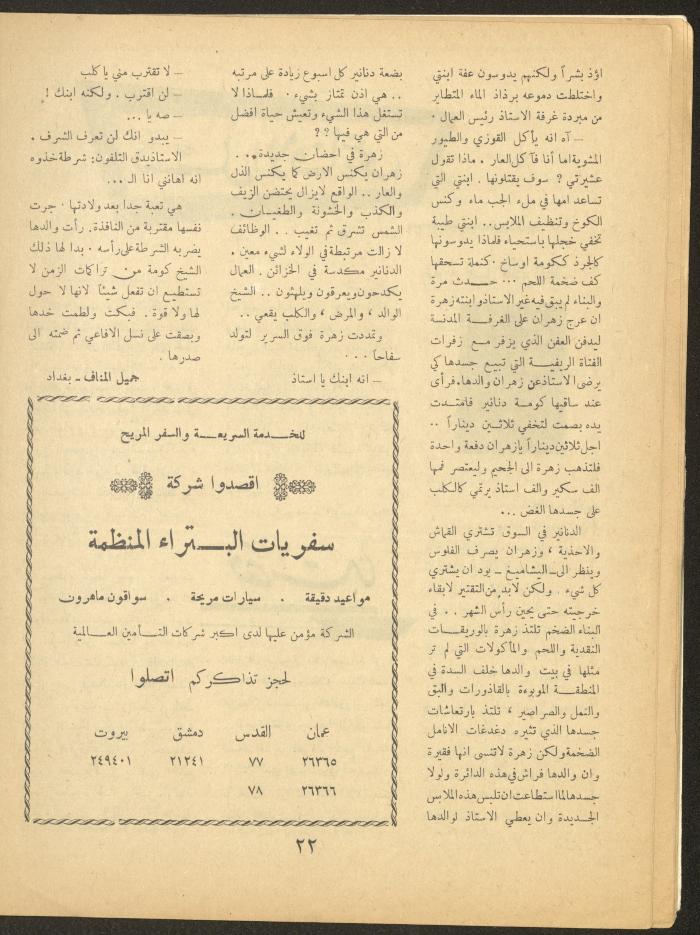 اؤذ بشراً ولكنهم يدوسون عفة ابنتي
واختلطت دموعه برذاذ الماء المتطاير
من مبردة غرفة الاستاذ رئيس العمال .
– آه انه يأكل القوزي والطيور
المشوية اما أنا فآكل العار . ماذا تقول
عشيرتي ؟ سوف يقتلونها . ابنتي التي
تساعد امها في ملء الحب ماء وكنس
الكوخ وتنظيف الملابس .. ابنتي طيبة
تخفي خجلها باستحياء فلماذا يدوسونها
كالجرذ ككومة اوساخ . كنملة تسحقها
كف ضخمة اللحم ... حدث مرة
والبناء لم يبق فيه غير الاستاذ وابنته زهرة
ان عرج زهران على الغرفة المدنسة
ليدفن العفن الذي يزفر مع زفرات
الفتاة الريفية التي تبيع جسدها كي
يرضى الاستاذ عن زهران والدها. فرأى
عند ساقيها كومة دنانير فامتدت
يده بصمت لتخفي ثلاثين ديناراً ..
اجل ثلاثين ديناراً يازهران دفعة واحدة
فلتذهب زهرة الى الجحيم وليعتصر فمها
الف سكير والف استاذ يرتمي كالكلب
على جسدها الغض ...
الدنانير في السوق تشتري القماش
والاحذية ، وزهران يصرف الفلوس
وينظر الى – اليشاميغ – بود ان يشتري
كل شيء . ولكن لابد من التقتير لابقاء
خرجيته حتى يحين رأس الشهر . . في
البناء الضخم تلتذ زهرة بالوريقات
النقدية واللحم والمأكولات التي لم تر
مثلها في بيت والدها خلف السدة في
المنطقة الموبوءة بالقاذورات والبق
والنمل والصراصير ، تلتذ بارتعاشات
جسدها الذي تثيره دغدغات الانامل
الضخمة ولكن زهرة لاتنسى انها فقيرة
وان والدها فراش في هذه الدائرة ولولا
جسدها لما استطاعت ان تلبس هذه الملابس
الجديدة وان يعطي الاستاذ لوالدها
بضعة دنانير كل اسبوع زيادة على مرتبه
.. هي اذن تمتاز بشيء . فلماذا لا
تستغل هذا الشيء وتعيش حياة افضل
من التي هي فيها ؟ ؟
زهرة في احضان جديدة . .
زهران يكنس الارض كما يكنس الذل
والعار .. الواقع لايزال يحتضن الزيف
والكذب والخشونة والطغيان .
الشمس تشرق ثم تغيب .. الوظائف
لا زالت مرتبطة في الولاء لشيء معين .
الدنانير مكدسة في الخزائن . العمال
يكدحون ويعرقون ويلهثون .. الشيخ
الوالد ، والمرض ، والكلب يقعي ..
وتمددت زهرة فوق السرير لتولد
سفاحا ...
– انه ابنك يا استاذ
– لا تقترب مني يا كلب
– لن اقترب . ولكنه ابنك !
– صه يا ...
– يبدو انك لن تعرف الشرف .
الاستاذ يدق التلفون : شرطة خذوه
انه اهانني انا الـ ...
هي تعبة جدا بعد ولادتها . جرت
نفسها مقتربة من النافذة . رأت والدها
يضربه الشرطة على رأسه . بدا لها ذلك
الشيخ كومة من تراكمات الزمن لا
تستطيع ان تفعل شيئاً لانها لا حول
لها ولا قوة . فبكت ولطمت خدها
وبصقت على نسل الافاعي ثم ضمته الى
صدرها .
جميل المناف – بغداد
للخدمة السريعة والسفر المريح
اقصدوا شركة
سفريات البتراء المنظمة
مواعيد دقيقة . سيارات مريحة . سواقون ماهرون
الشركة مؤمن عليها لدى اكبر شركات التأمين العالمية
لحجز تذاكركم اتصلوا
عمان القدس دمشق بيروت
٢٦٣٦٥ ٧٧ ٢١٢٤١ ٢٤٩٤٠١
٢٦٣٦٦ ٧٨
٢٢